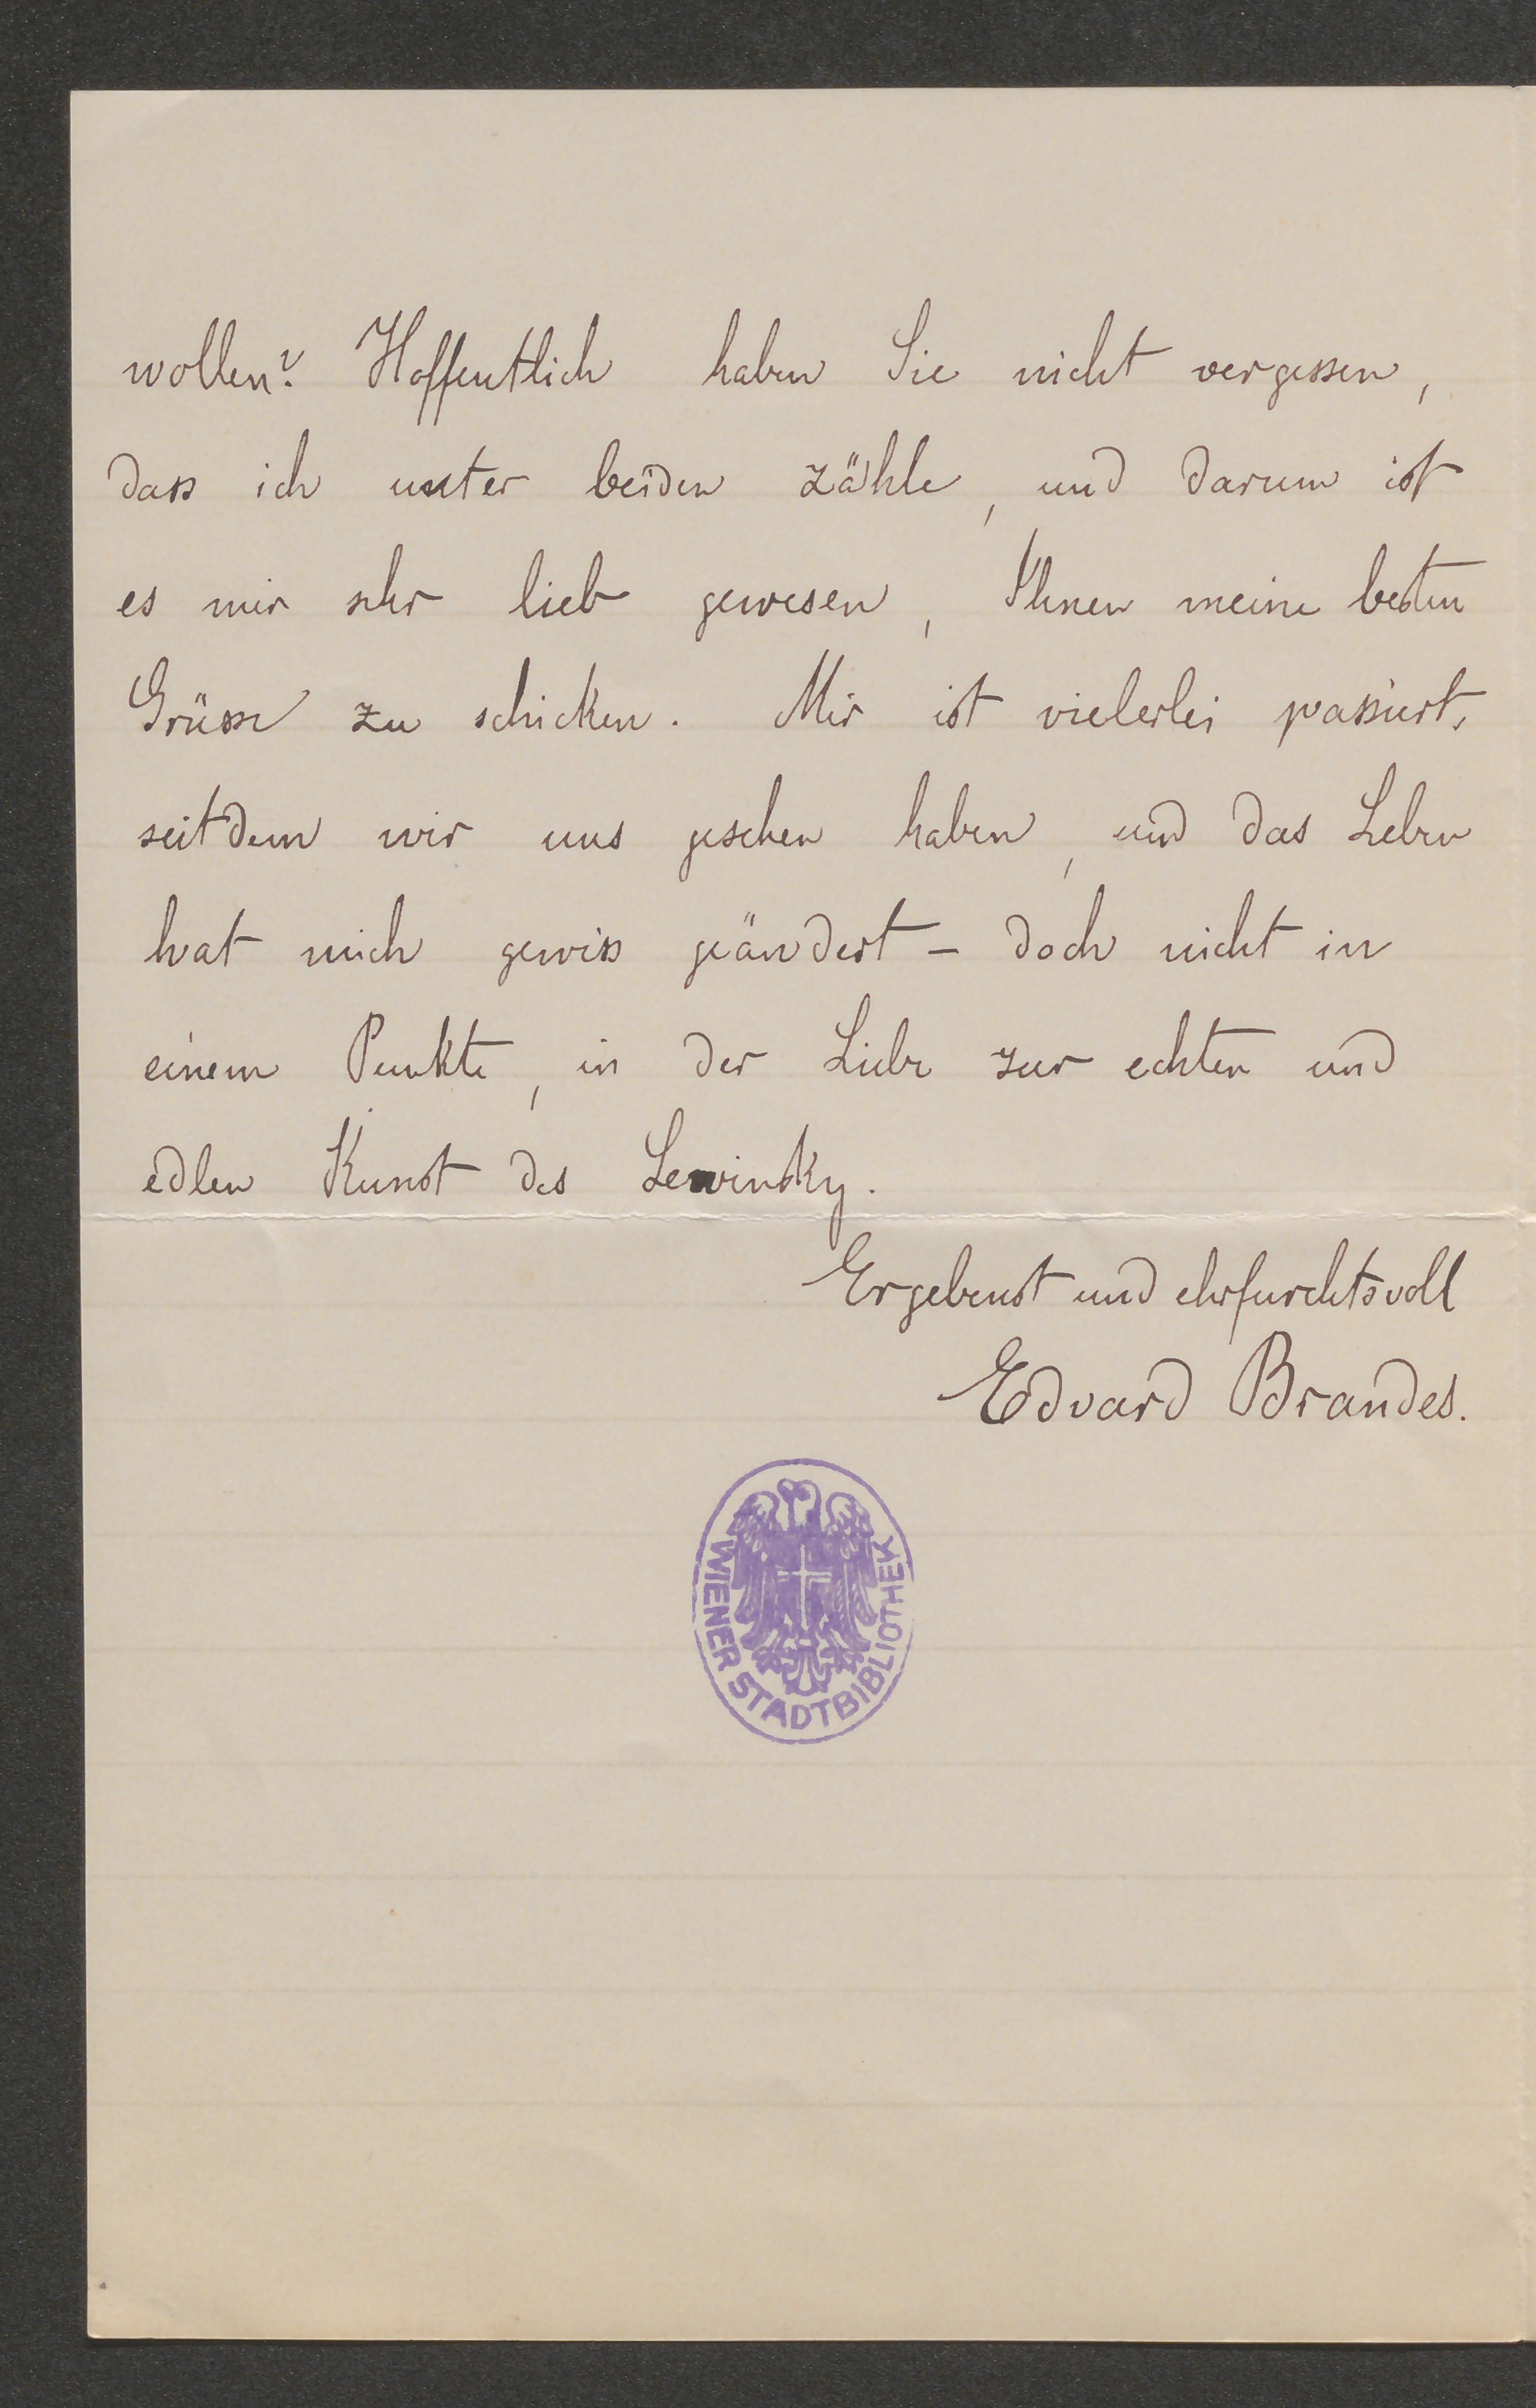 wollen? Hoffentlich haben Sie nicht vergessen,
dass ich unter beiden zähle, und darum ist
es mir sehr lieb gewesen, Ihnen meine besten
Grüsse zu schicken. Mir ist vielerlei passiert,
seitdem wir uns gesehen haben, und das Leben
hat mich gewiss geändert – doch nicht in
einem Punkte, in der Liebe zur echten und
edlen Kunst des Lewinsky.
Ergebenst und ehrfurchtsvoll
Edvard Brandes.
WIENER STADTBIBLIOTHEK